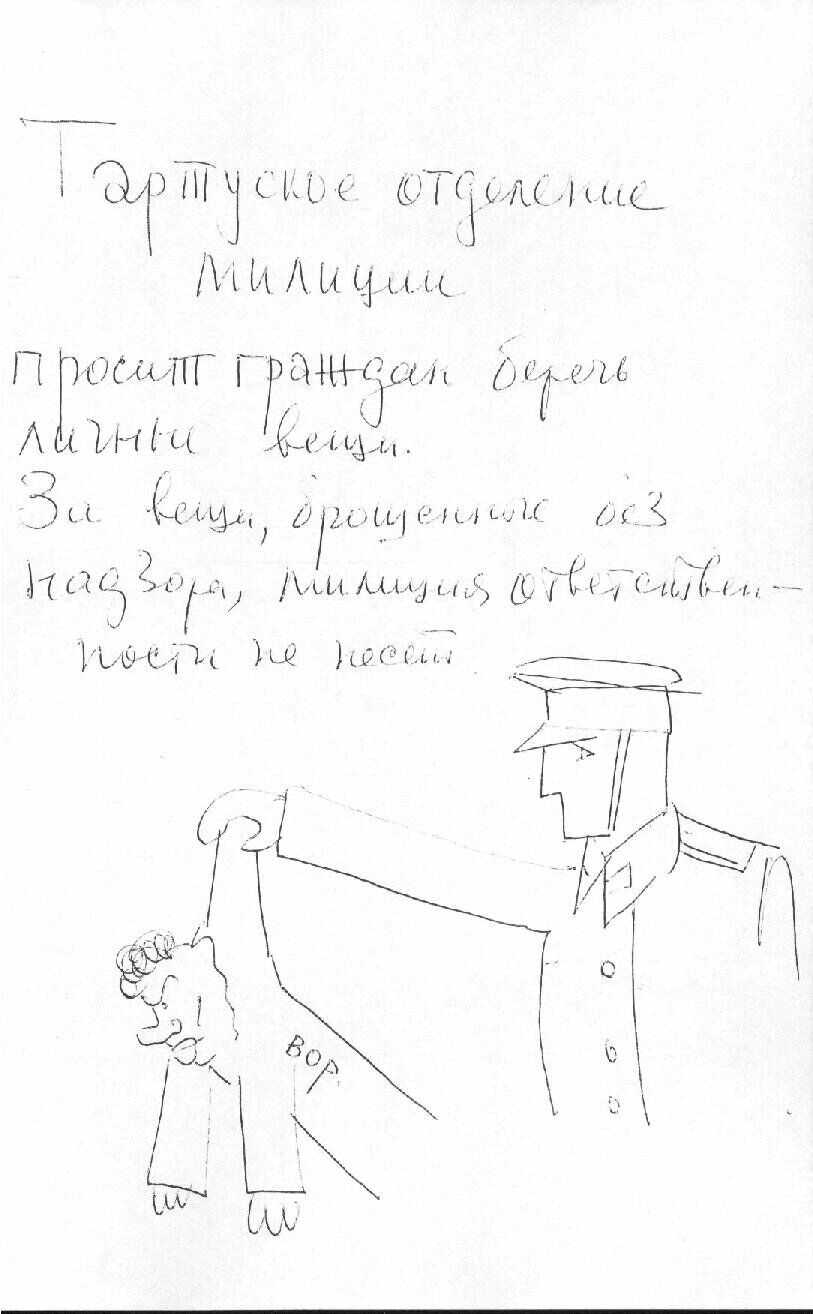 Тартуское отделение
милиции
просит граждан беречь
личные вещи.
За вещи, брошенные без
надзора, милиция ответствен-
ности не несет
ВОР